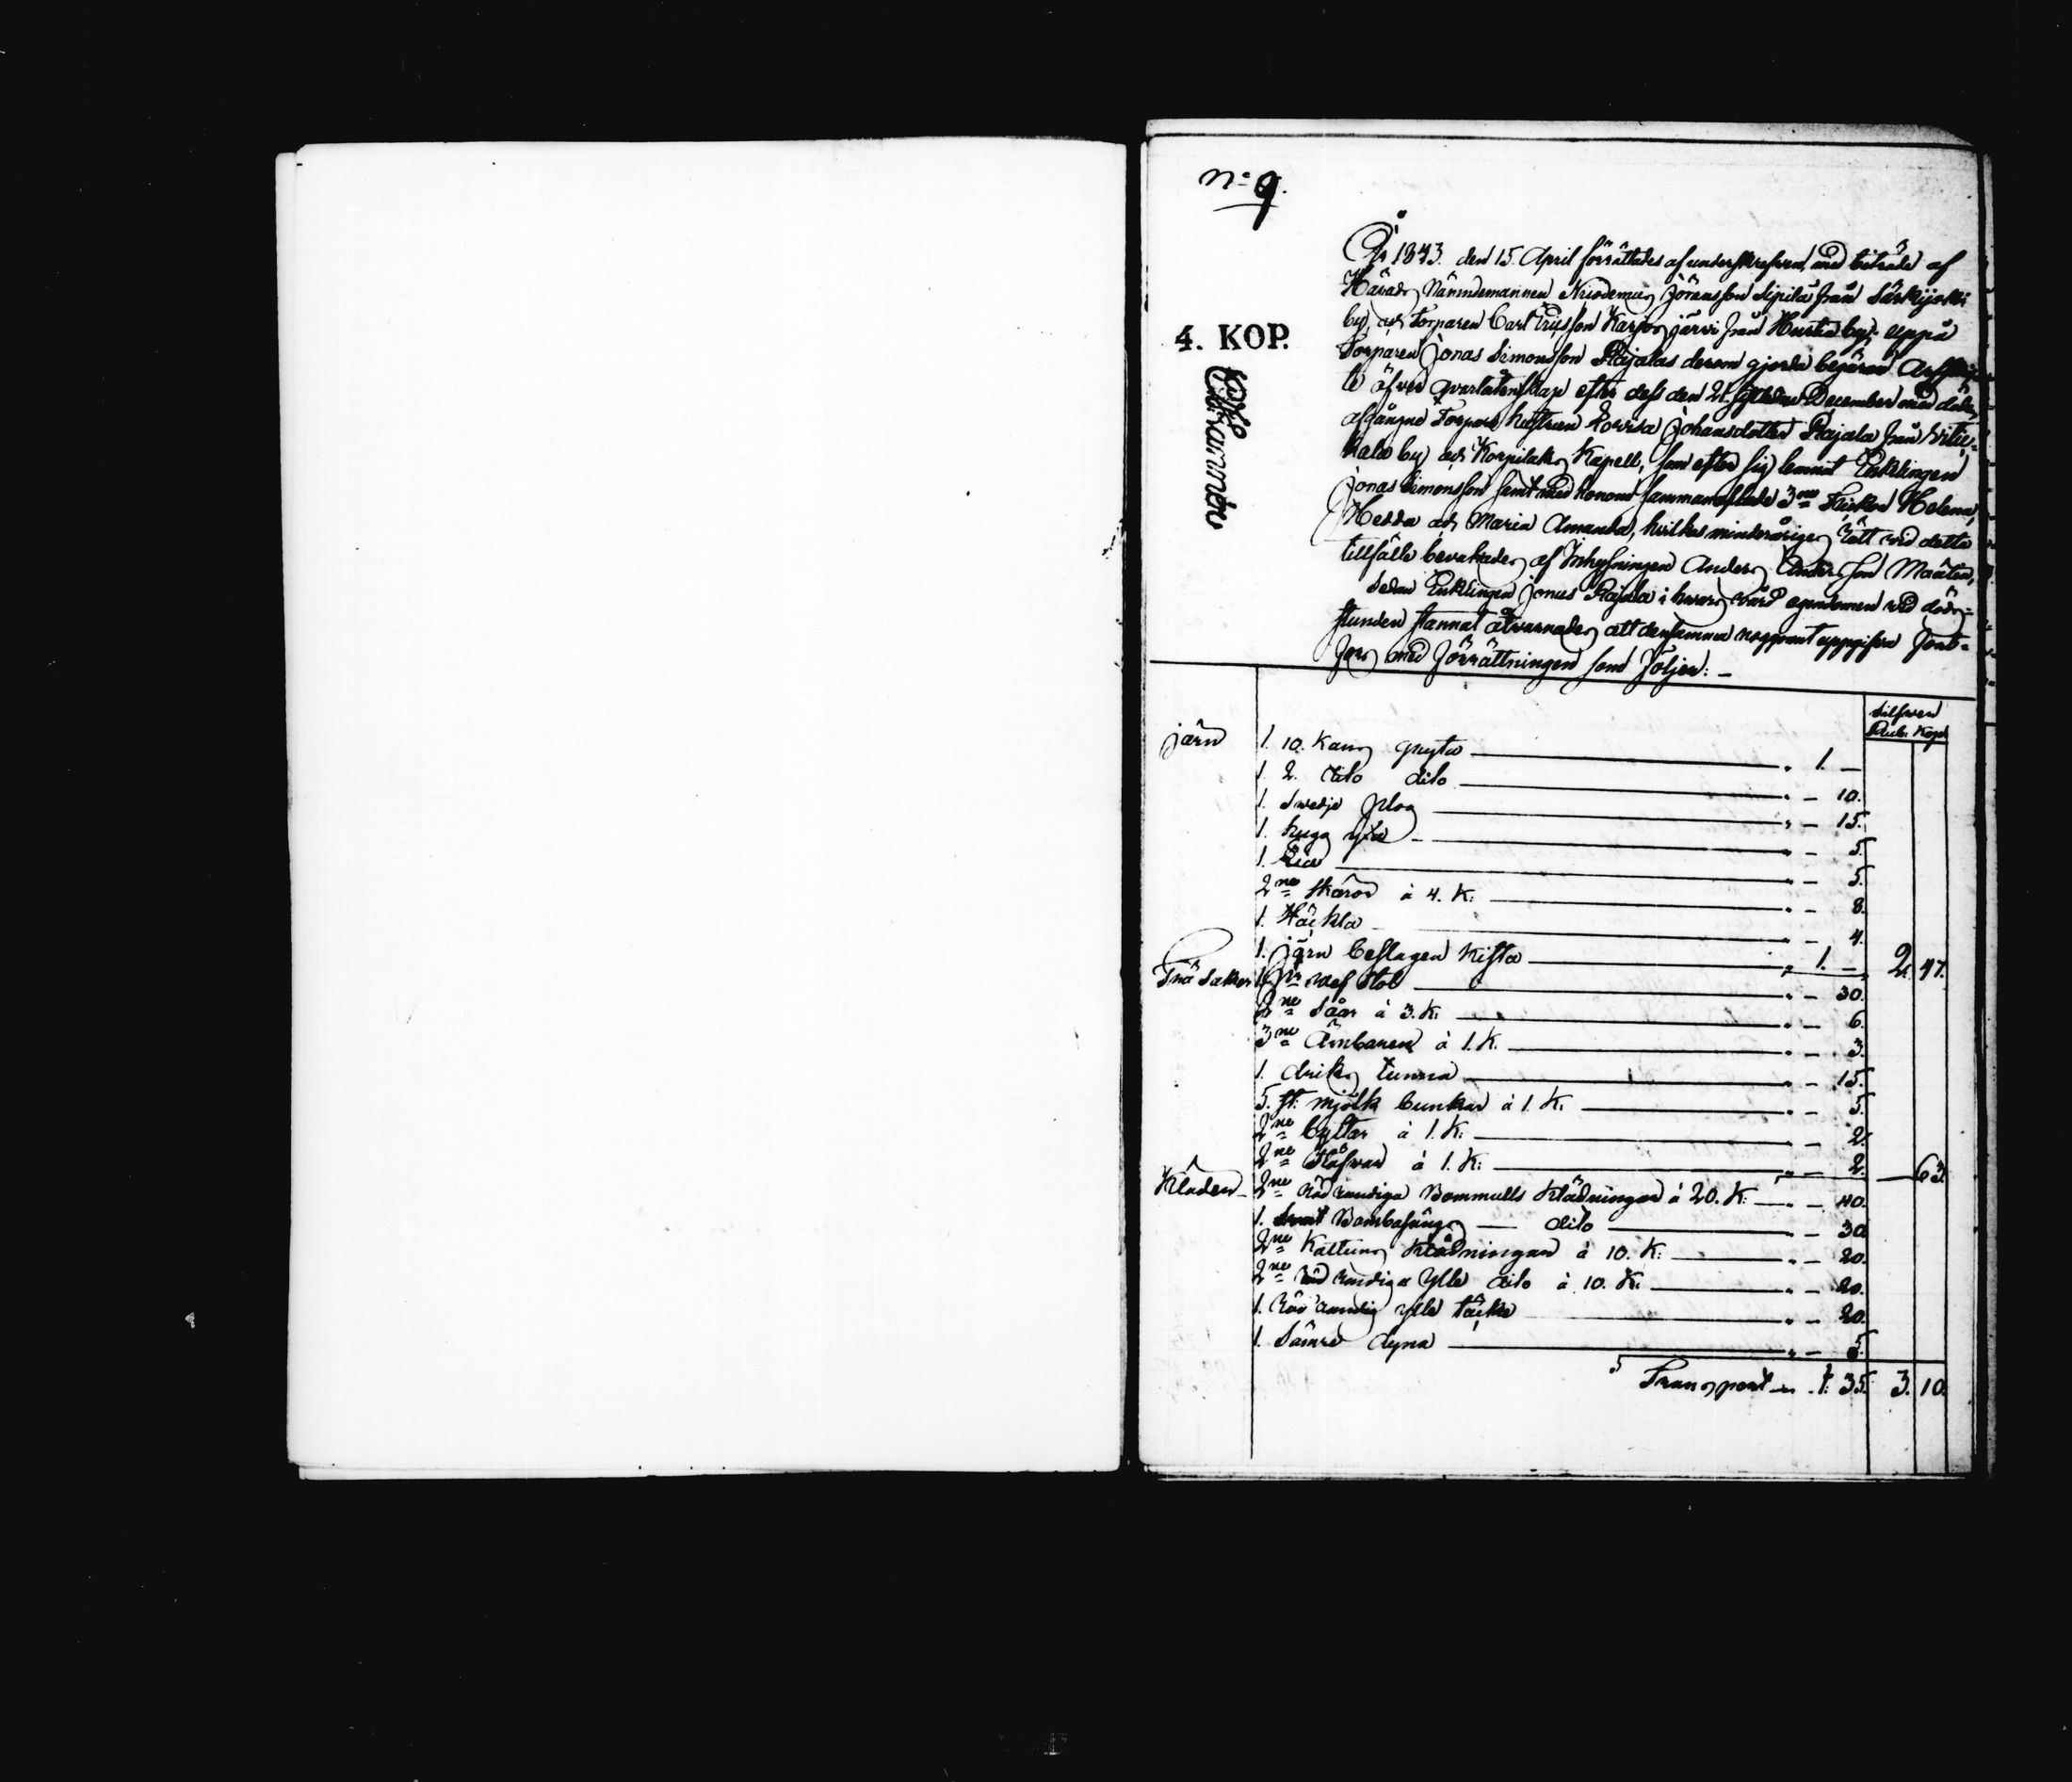 No 9.
4. KOP.
År 1843. den 15. April förrättades af underskrefven, med biträde af
Härads Nämndemannen Nicodemus Göransson Sipilä från Särkijoki
by, och Torparen Carl Karjosjärvi från by, uppå
Torparen Jonas Simonsson Rajalas derom gjorda begäran
öfver qvarlåtenskap efter dess den 21. sistledne December med döden
afgångne Torpare hustrun Lovisa Johansdotter Rajala från
by och Korpilaks Kapell, som efter sig lemnat Enklingen
Jonas Simonsson samt med honom sammanaflade 3ne flickor Helena,
Hedda och Maria Amanda, hvilkas minderåriges rätt vid detta
tillfälle bevakades af Inhysningen Anders Andersson
Sedan Enklingen Jonas Rajala i hvars vård egendomen vid döds-
stunden stannat åtvarnades att densamma noggrant uppgifva fort-
fors med förrättningen som följer: -
Silfver
Rub. Kop.
järn 1. 10. Kans gryta 1. —
1. 2. dito dito — 10.
1. Svedje plog — 15.
1. hugg yxa — 5.
1. Lia — 5.
2ne skäror à 4. K: — 8.
1. Häckla — 4.
1. järn beslagen Kista 1. — 2. 47.
Trä Saker 1. väf stol — 30.
2ne Såar à 3. K: — 6.
3ne Ämbaren à 1. K. — 3.
1. dricks tunna — 15.
5. st: mjölk bunkar à 1. K. — 5.
2ne byttor à 1. K: — 2.
2ne à 1. K: — 2. — 63.
Kläder 2ne röd randiga Bommulls Klädningar à 20. K: — 40.
1. Svart Bombasängs — dito — 30
2ne Kattuns Klädningar à 10. K: — 20.
2ne röd randiga Ylle dito à 10. K: — 20.
1. röd randig ylle täcke — 20.
1. Sämre dyna — 5.
Transport 1. 35. 3. 10.